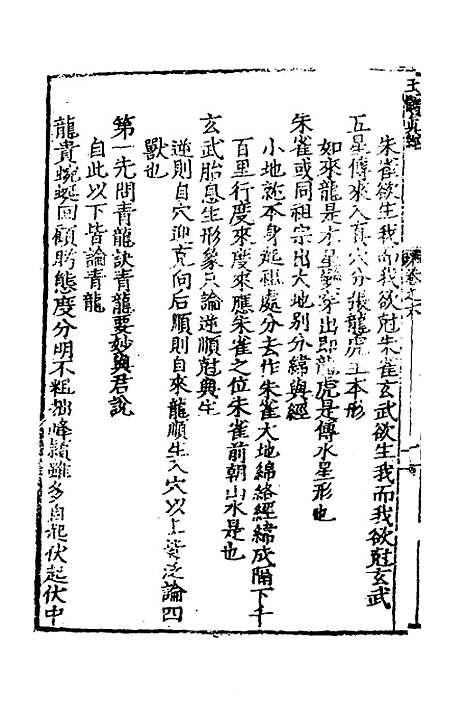 玉髓真經
卷之六
朱雀欲生我而我欲尅朱雀玄武欲生我而我欲尅玄武
五星傳來入首穴分張龍虎主本形
如來龍是水星穿出即龍虎是傳水星形也
朱雀或同祖宗出大地別分緯與經
小地於本身起祖處分去作朱雀大地綿絡經緯或隔下千
百里行度來度來應朱雀之位朱雀前朝山水是也
玄武胎息生形象只論逆順尅與生
逆則自穴迎克向后順則自來龍順生入穴以上皆泛論四
獸也
第一先問青龍訣青龍要妙與君說
自此以下皆論青龍
龍貴蜿蜒回顧勝態度分明不粗拙峰巒雖多自起伏起伏中